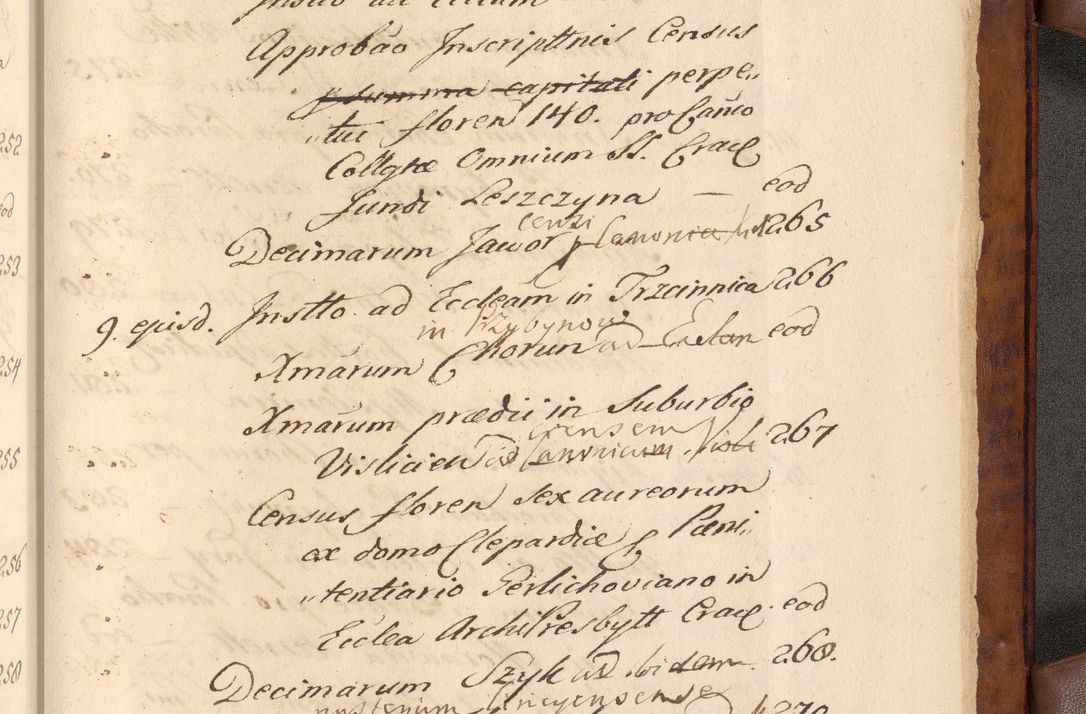 Approbao Inscripttnis Census
summa capitali perpe„
„tui floren 140. pro Canco
Collgtæ Omnium SS. Crac
fundi Leszczyna — eod
censi
Decimarum Jawor p Canonica 265
9. episd. Instto ad Eccleam in Trzcinnica 266
in Przybynow
Xmarum Chorun ad Exetan eod
Xmarum prædii in Suburbio
censem
Vislicien ad Canonicum 267
Census floren sex aureorum
ex domo Clepardiæ p Pæni„
„tentiario Gerlichoviano in
Ecclea ArchiPresbytt Crac. eod
Decimarum Szyk ad ibidem 268.
270